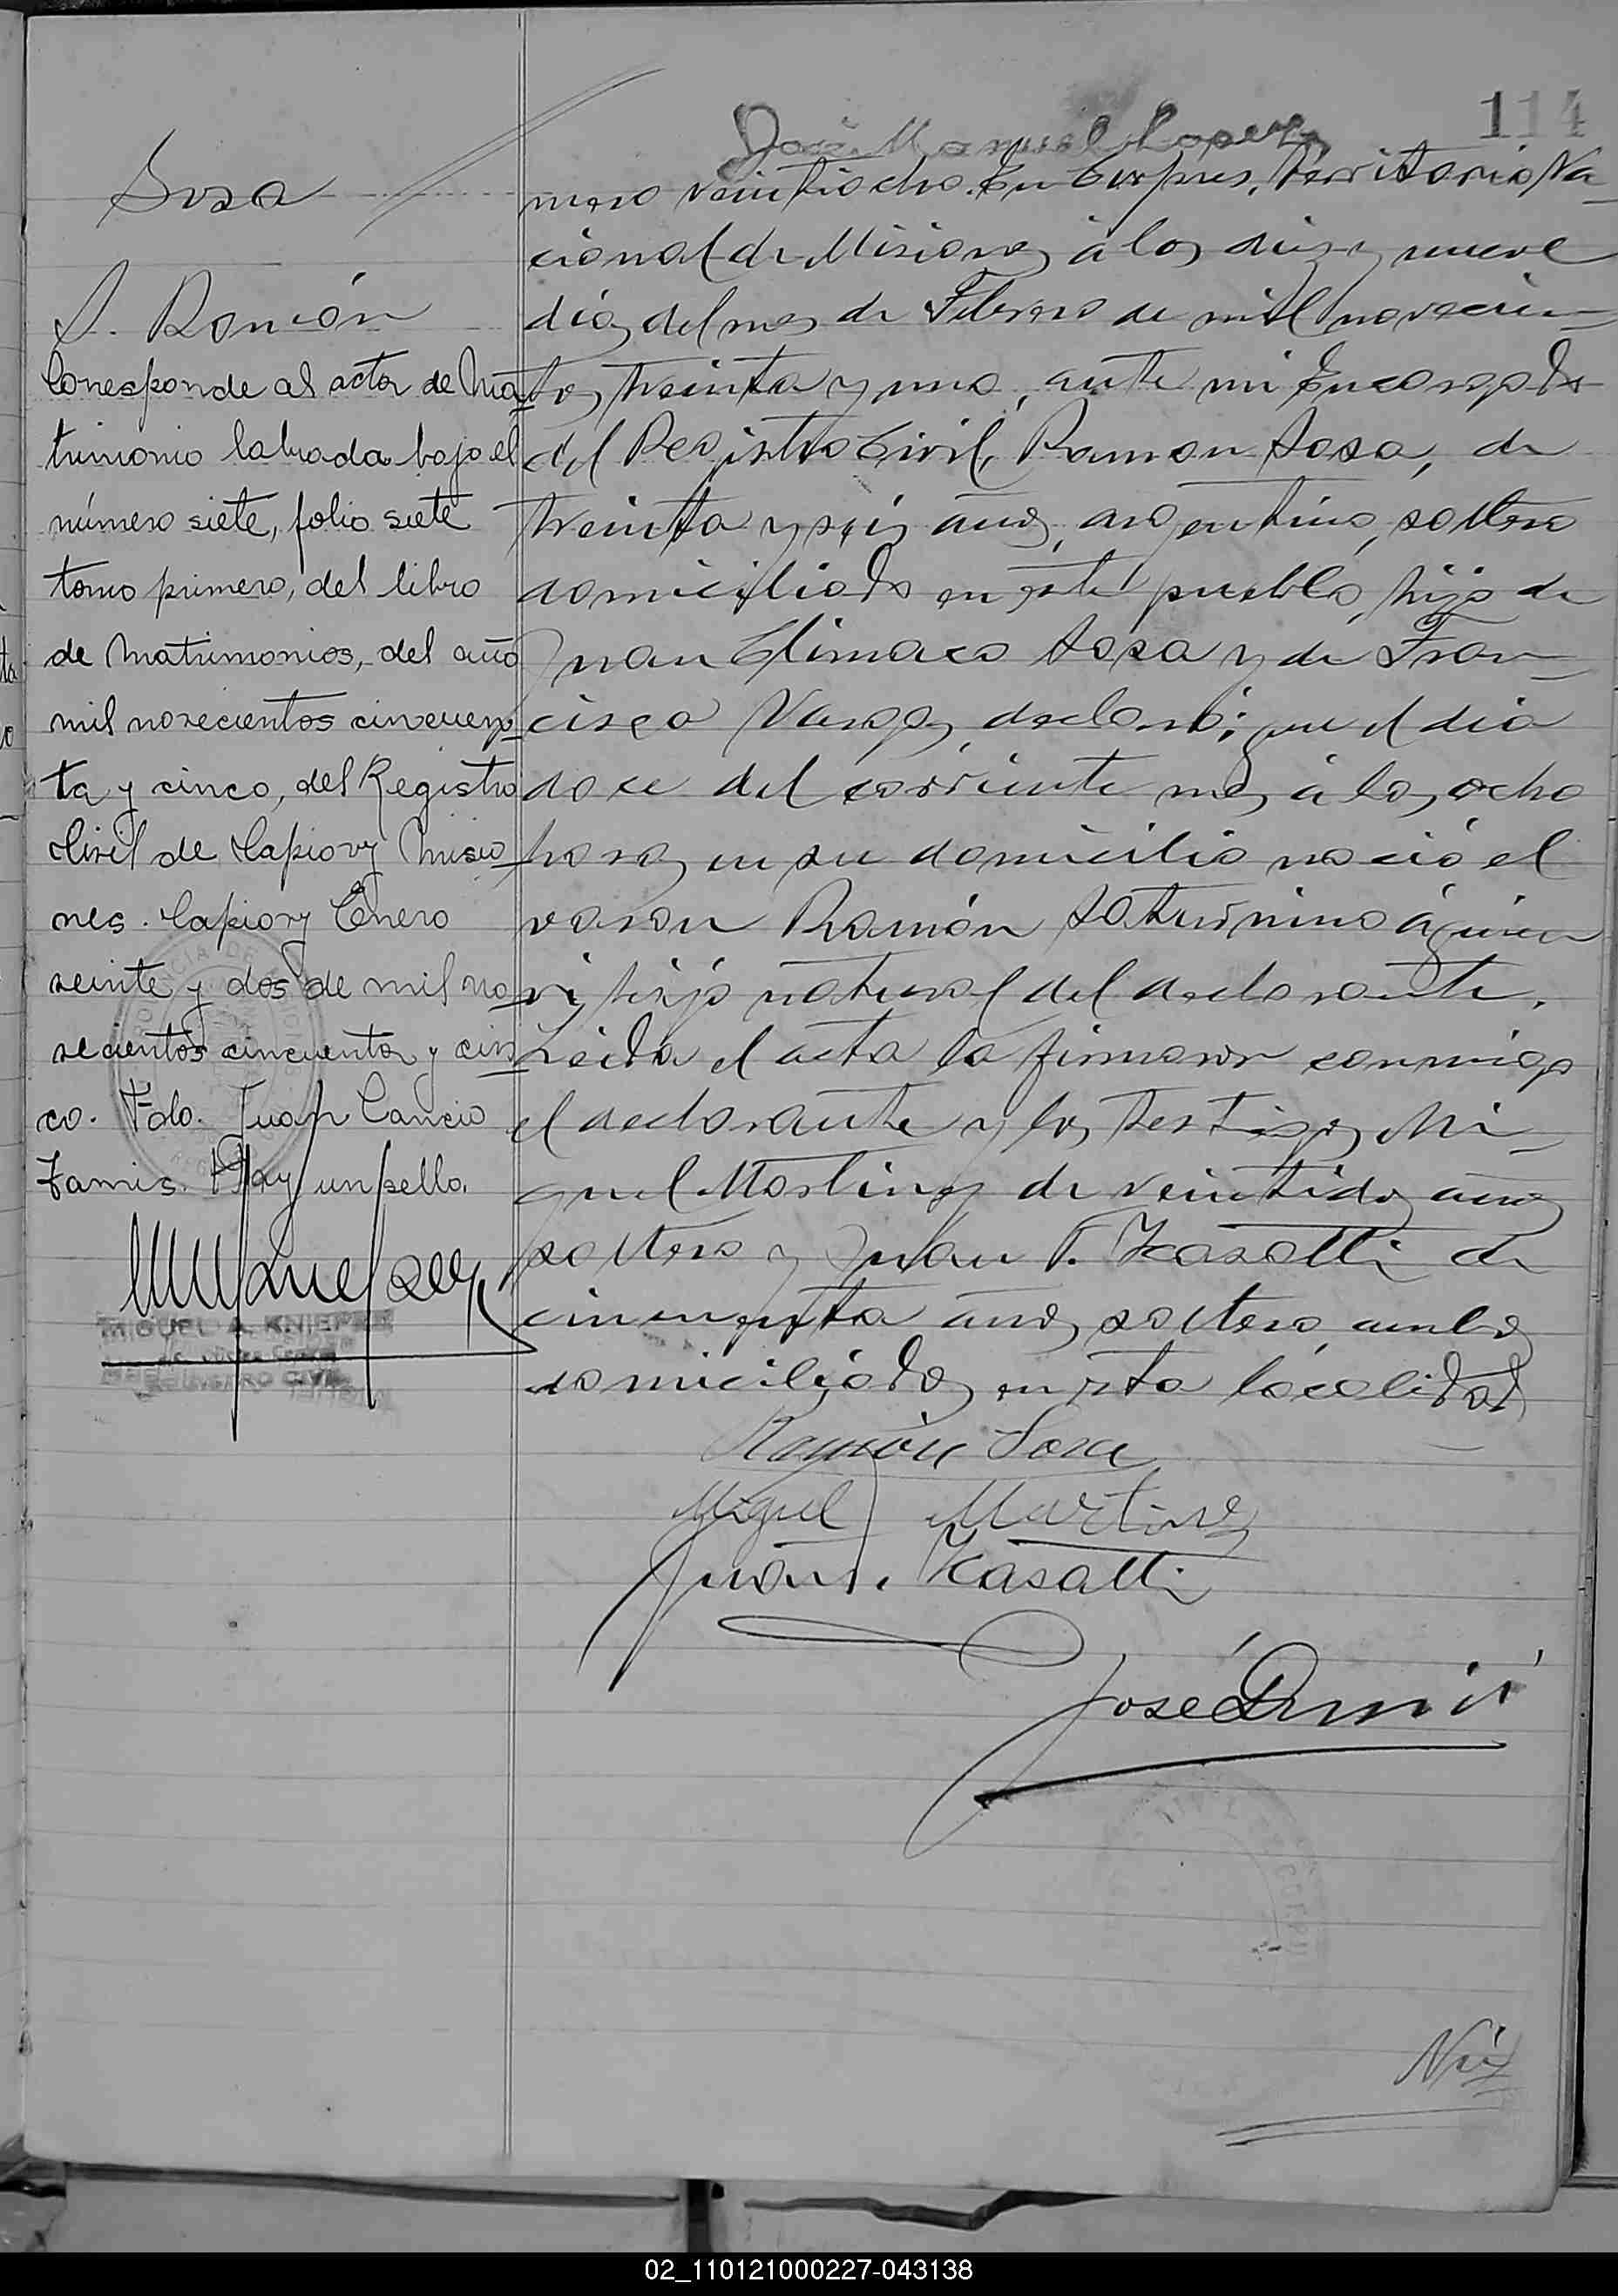 114
José Manuel Lopez
Sosa
S. Ramón
Corresponde al acta de Ma-
trimonio labrada bajo el
número siete, folio siete
tomo primero, del libro
de Matrimonios, del año
mil novecientos cincuen-
ta y cinco, del Registro
Civil de Capiovy Misio-
nes. Capiovy Enero
veinte y dos de mil no-
vecientos cincuenta y cin-
co. Fdo. Juan Cancio
Tamis. Hay un sello.
MIGUEL A. KNIEPER
REGISTRO CIVIL
mero veintiocho. En Corpus, Territorio Na-
cional de Misiones a los diez y nueve
dias del mes de Febrero de mil novecien-
tos treinta y uno, ante mi Encargado
del Registro Civil, Ramon Sosa, de
treinta y seis años, argentino, soltero
domiciliado en este pueblo, hijo de
Juan Climaco Sosa y de Fran-
cisca Vargas, declaró; que el dia
doce del corriente mes a las ocho
horas en su domicilio nació el
varon Ramón Saturnino
hijo natural del declarante.
Leida el acta la firmaron conmigo
el declarante y los testigos Mi-
guel Martinez de veintidos años
soltero y Juan F. Kasatti de
cincuenta años soltero, ambos
domiciliados en esta localidad
Ramón Sosa
Miguel Martinez
Juan F. Kasatti
José
Nú
02_110121000227-043138